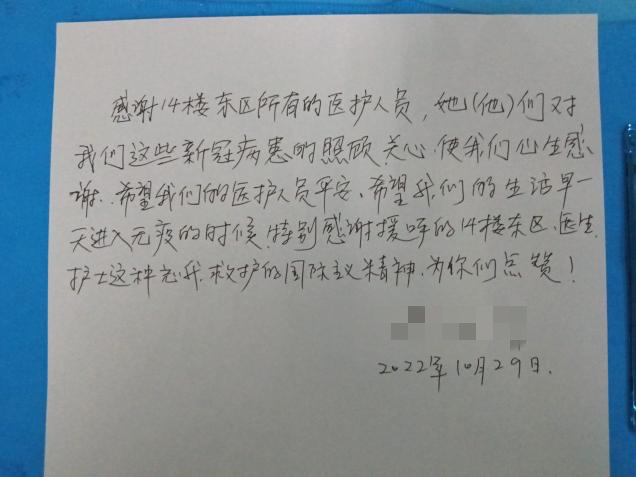 感谢14楼东区所有的医护人员,她(他)们对
我们这些新冠病患的照顾关心,使我们心生感
谢.希望我们的医护人员平安、希望我们的生活早一
天进入无疫的时候,特别感谢援呼的14楼东区、医生,
护士这种忘我.救护的国际主义精神.为你们点赞!
2022年10月29日.